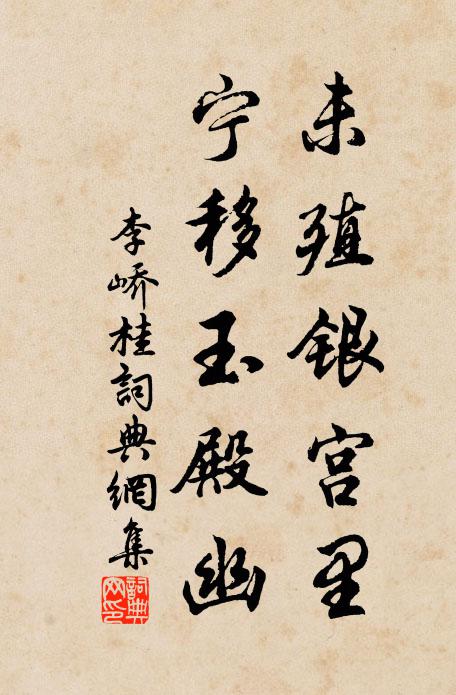 未殖银宫里
宁移玉殿幽
李峤桂詞典網集
詞典网印